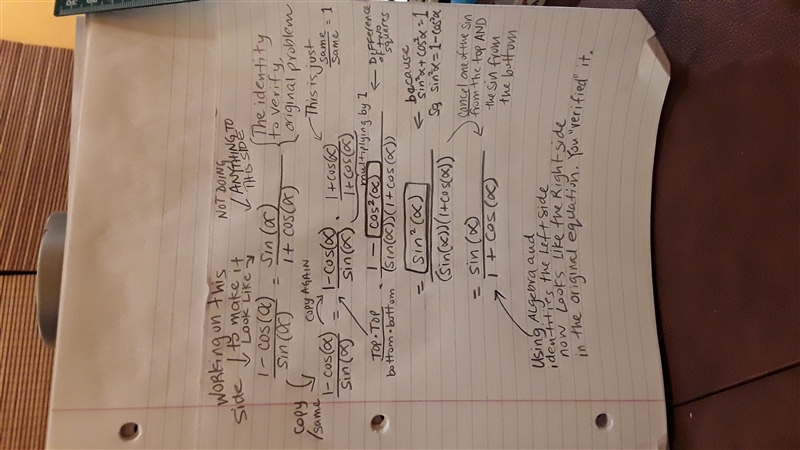 Working on this
side to make it
Look Like
NOT DOING
ANYTHING TO
THIS SIDE
1 - cos(α) / sin(α) = sin(α) / 1 + cos(α)
The identity
to verify,
original problem
copy
/same
copy AGAIN
This is just
same/same = 1
1 - cos(α) / sin(α) = 1 - cos(α) / sin(α) · 1 + cos(α) / 1 + cos(α)
multiplying by 1
TOP · TOP / bottom · bottom
= 1 - cos²(α) / (sin(α))(1 + cos(α))
← Difference
of two
squares
= sin²(α) / (sin(α))(1 + cos(α))
← because
sin²x + cos²x = 1
so sin²x = 1 - cos²x
= sin(α) / 1 + cos(α)
cancel one of the sin
from the top AND
the sin from
the bottom
Using Algebra and
identities the Left side
now Looks Like the Right side
in the original equation. You "verified" it.